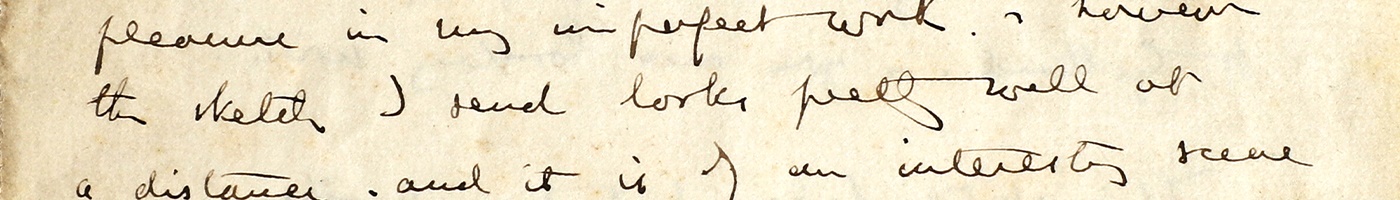 pleasure in my imperfect work. however
the sketch I send looks pretty well at
a distance. and it is of an interesting scene